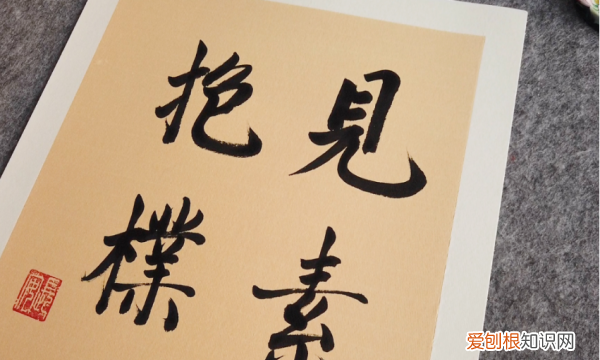 見素
抱樸
爱刨根知识网